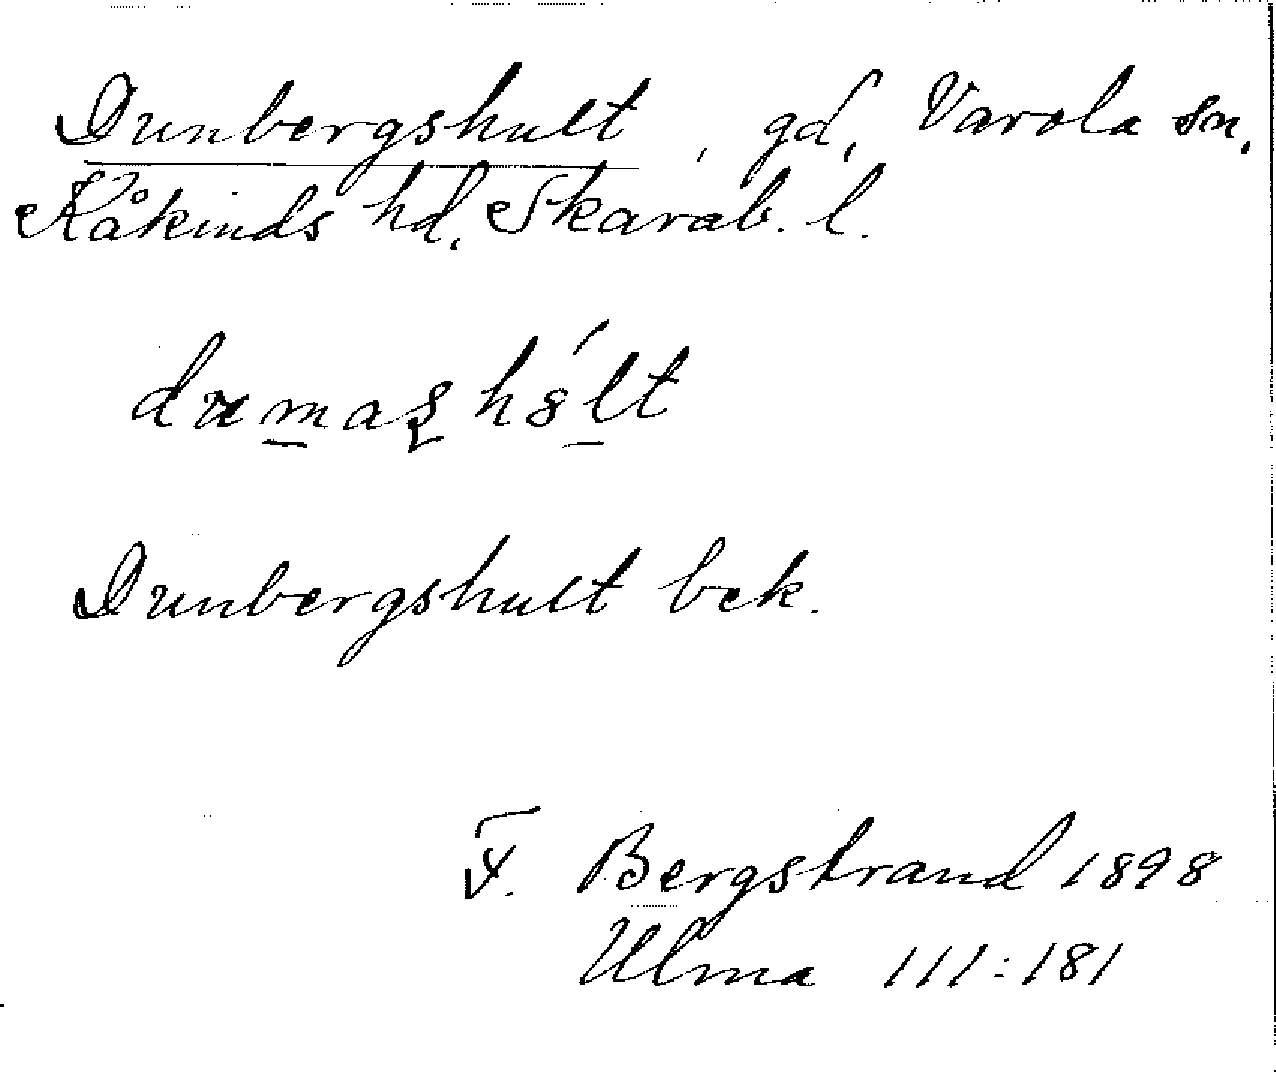 Dunbergshult, gd, Varola sn,
Kåkinds hd, Skarab. l.
Dunbergshult bek.
F. Bergstrand 1898
Ulma 111:181